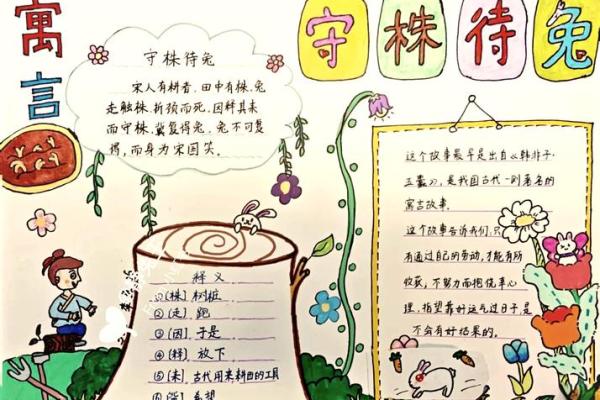 寓言
守株待兔
守株待兔
宋人有耕者。田中有株,兔
走触株,折颈而死。因释其耒
而守株,冀复得兔。兔不可复
得,而身为宋国笑。
释义
①[株] 树桩
②[走] 跑
③[因] 于是
④[释] 放下
⑤[耒] 古代用来耕田的工具
⑥[冀] 希望
这个故事最早是出自《韩非子·
五蠹》,是我国古代一则著名的
寓言故事。
这个故事告诉我们,只
有通过自己的劳动,才能有所
收获,不努力而抱侥幸心
理,指望靠好运气过日子是
不会有好结果的。